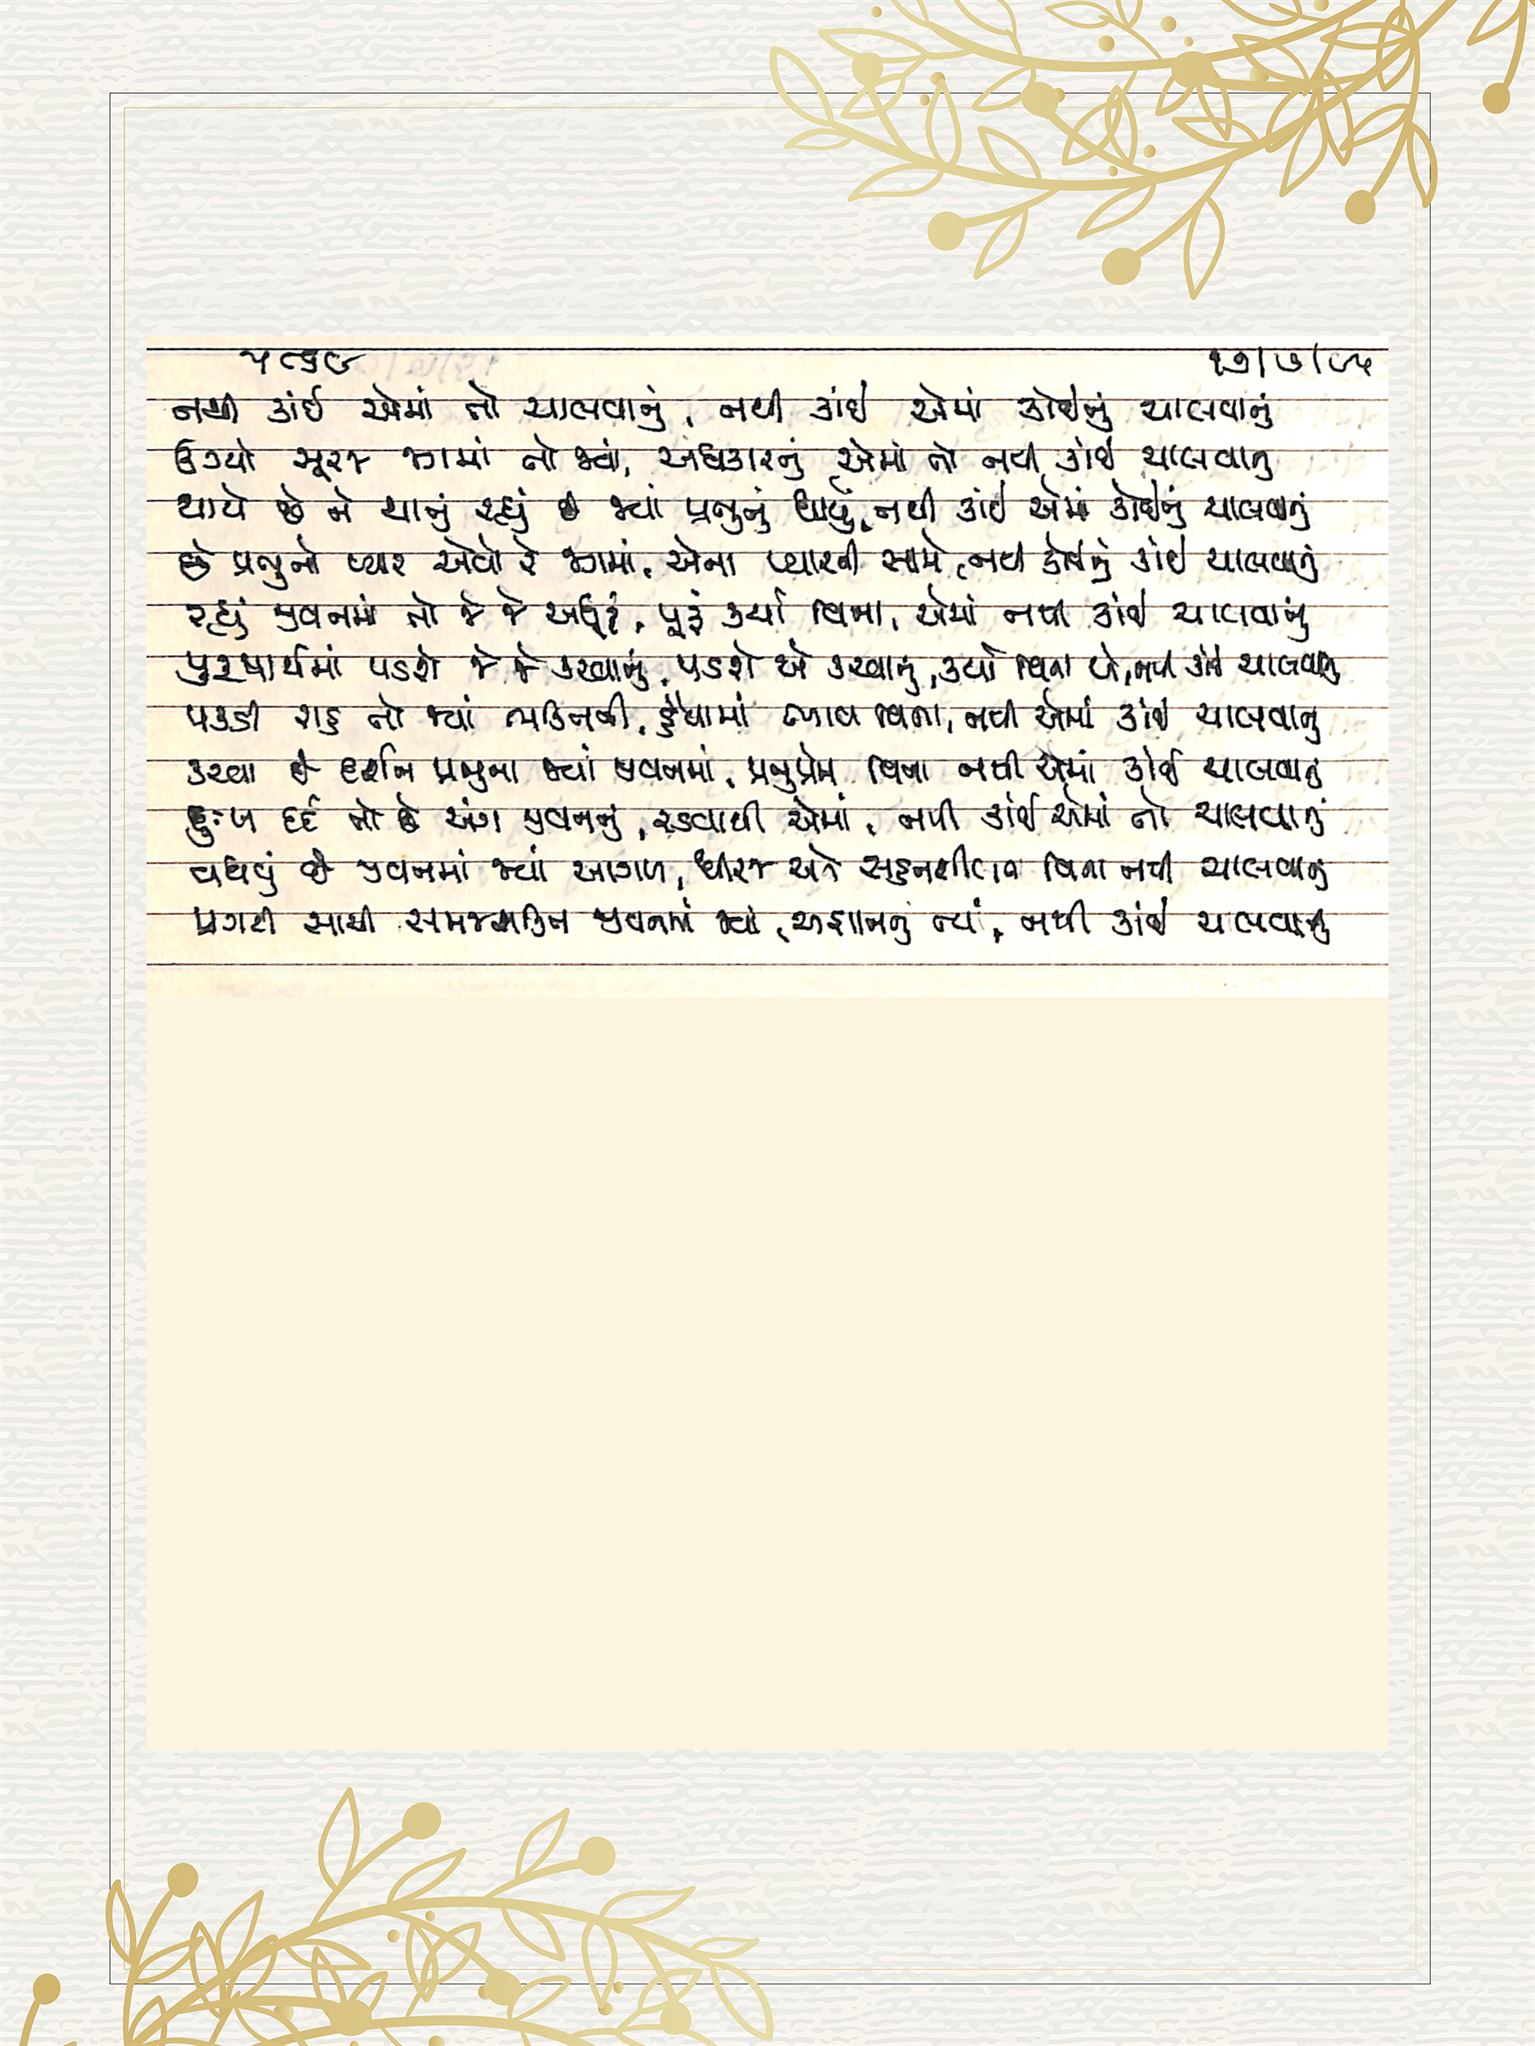 ૫૮૬૭ ૧૭/૭/૯૫
નથી કાંઈ એમાં તો ચાલવાનું, નથી કાંઈ એમાં કોઈનું ચાલવાનું
ઉગ્યો સૂરજ જગમાં તો જ્યાં, અંધકારનું એમાં તો નથી કાંઈ ચાલવાનું
થાયે છે ને થાતું રહ્યું છે જ્યાં પ્રભુનું ધાર્યું, નથી કાંઈ એમાં કોઈનું ચાલવાનું
છે પ્રભુનો પ્યાર એવો રે જગમાં, એના પ્યારની સામે, નથી કોઈનું કાંઈ ચાલવાનું
રહ્યું જીવનમાં તો જે જે અધૂરું, પૂરું કર્યા વિના, એમાં નથી કાંઈ ચાલવાનું
પુરુષાર્થમાં પડશે જે જે કરવાનું, પડશે એ કરવાનું, કર્યા વિના એ, નથી કાંઈ ચાલવાનું
પકડી રાહ તો જ્યાં ભક્તિની, હૈયામાં ભાવ વિના, નથી એમાં કાંઈ ચાલવાનું
કરવા છે દર્શન પ્રભુના જ્યાં જીવનમાં, પ્રભુપ્રેમ વિના નથી એમાં કાંઈ ચાલવાનું
દુઃખ દર્દ તો છે અંગ જીવનનું, રડવાથી એમાં, નથી કાંઈ એમાં તો ચાલવાનું
વધવું છે જીવનમાં જ્યાં આગળ, ધીરજ અને સહનશીલતા વિના નથી ચાલવાનું
પ્રગટી સાચી સમજશક્તિ જીવનમાં જ્યાં, અજ્ઞાનનું ત્યાં, નથી કાંઈ ચાલવાનું